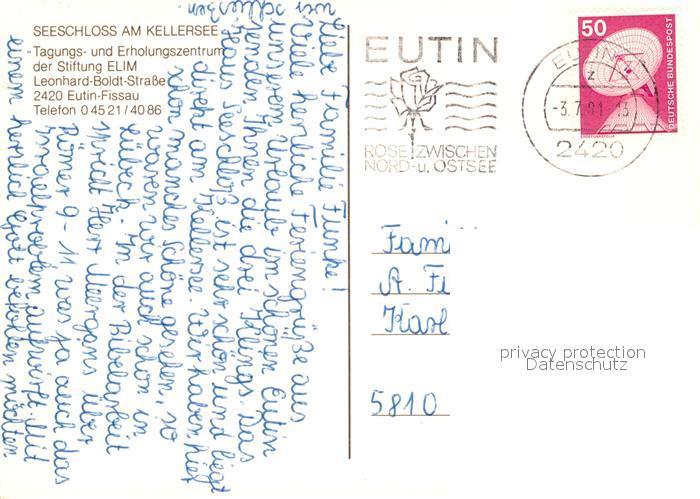 SEESCHLOSS AM KELLERSEE
Tagungs- und Erholungszentrum
der Stiftung ELIM
Leonhard-Boldt-Straße
2420 Eutin-Fissau
Telefon 0 45 21/40 86
Liebe Familie Funke!
Viele herzliche Feriengrüße aus
unserem Urlaub im schönen Eutin
senden Ihnen die drei Klungs. Das
Haus Seeschloß ist sehr schön und liegt
direkt am Kellersee. Wir haben hier
schon manches Schöne gesehen, so
waren wir auch schon in
Lübeck. In der Bibelarbeit
spricht Herr über
Römer 9 - 11 was ja auch das
Israelproblem aufwirft. Mit
einem herzlich Gott befohlen möchten
wir schließen
EUTIN
ROSE ZWISCHEN
NORD- u. OSTSEE
EUTIN
z
-3.7.81-13
2420
50
DEUTSCHE BUNDESPOST
Fami
A. Fi
Karl
5810
privacy protection
Datenschutz